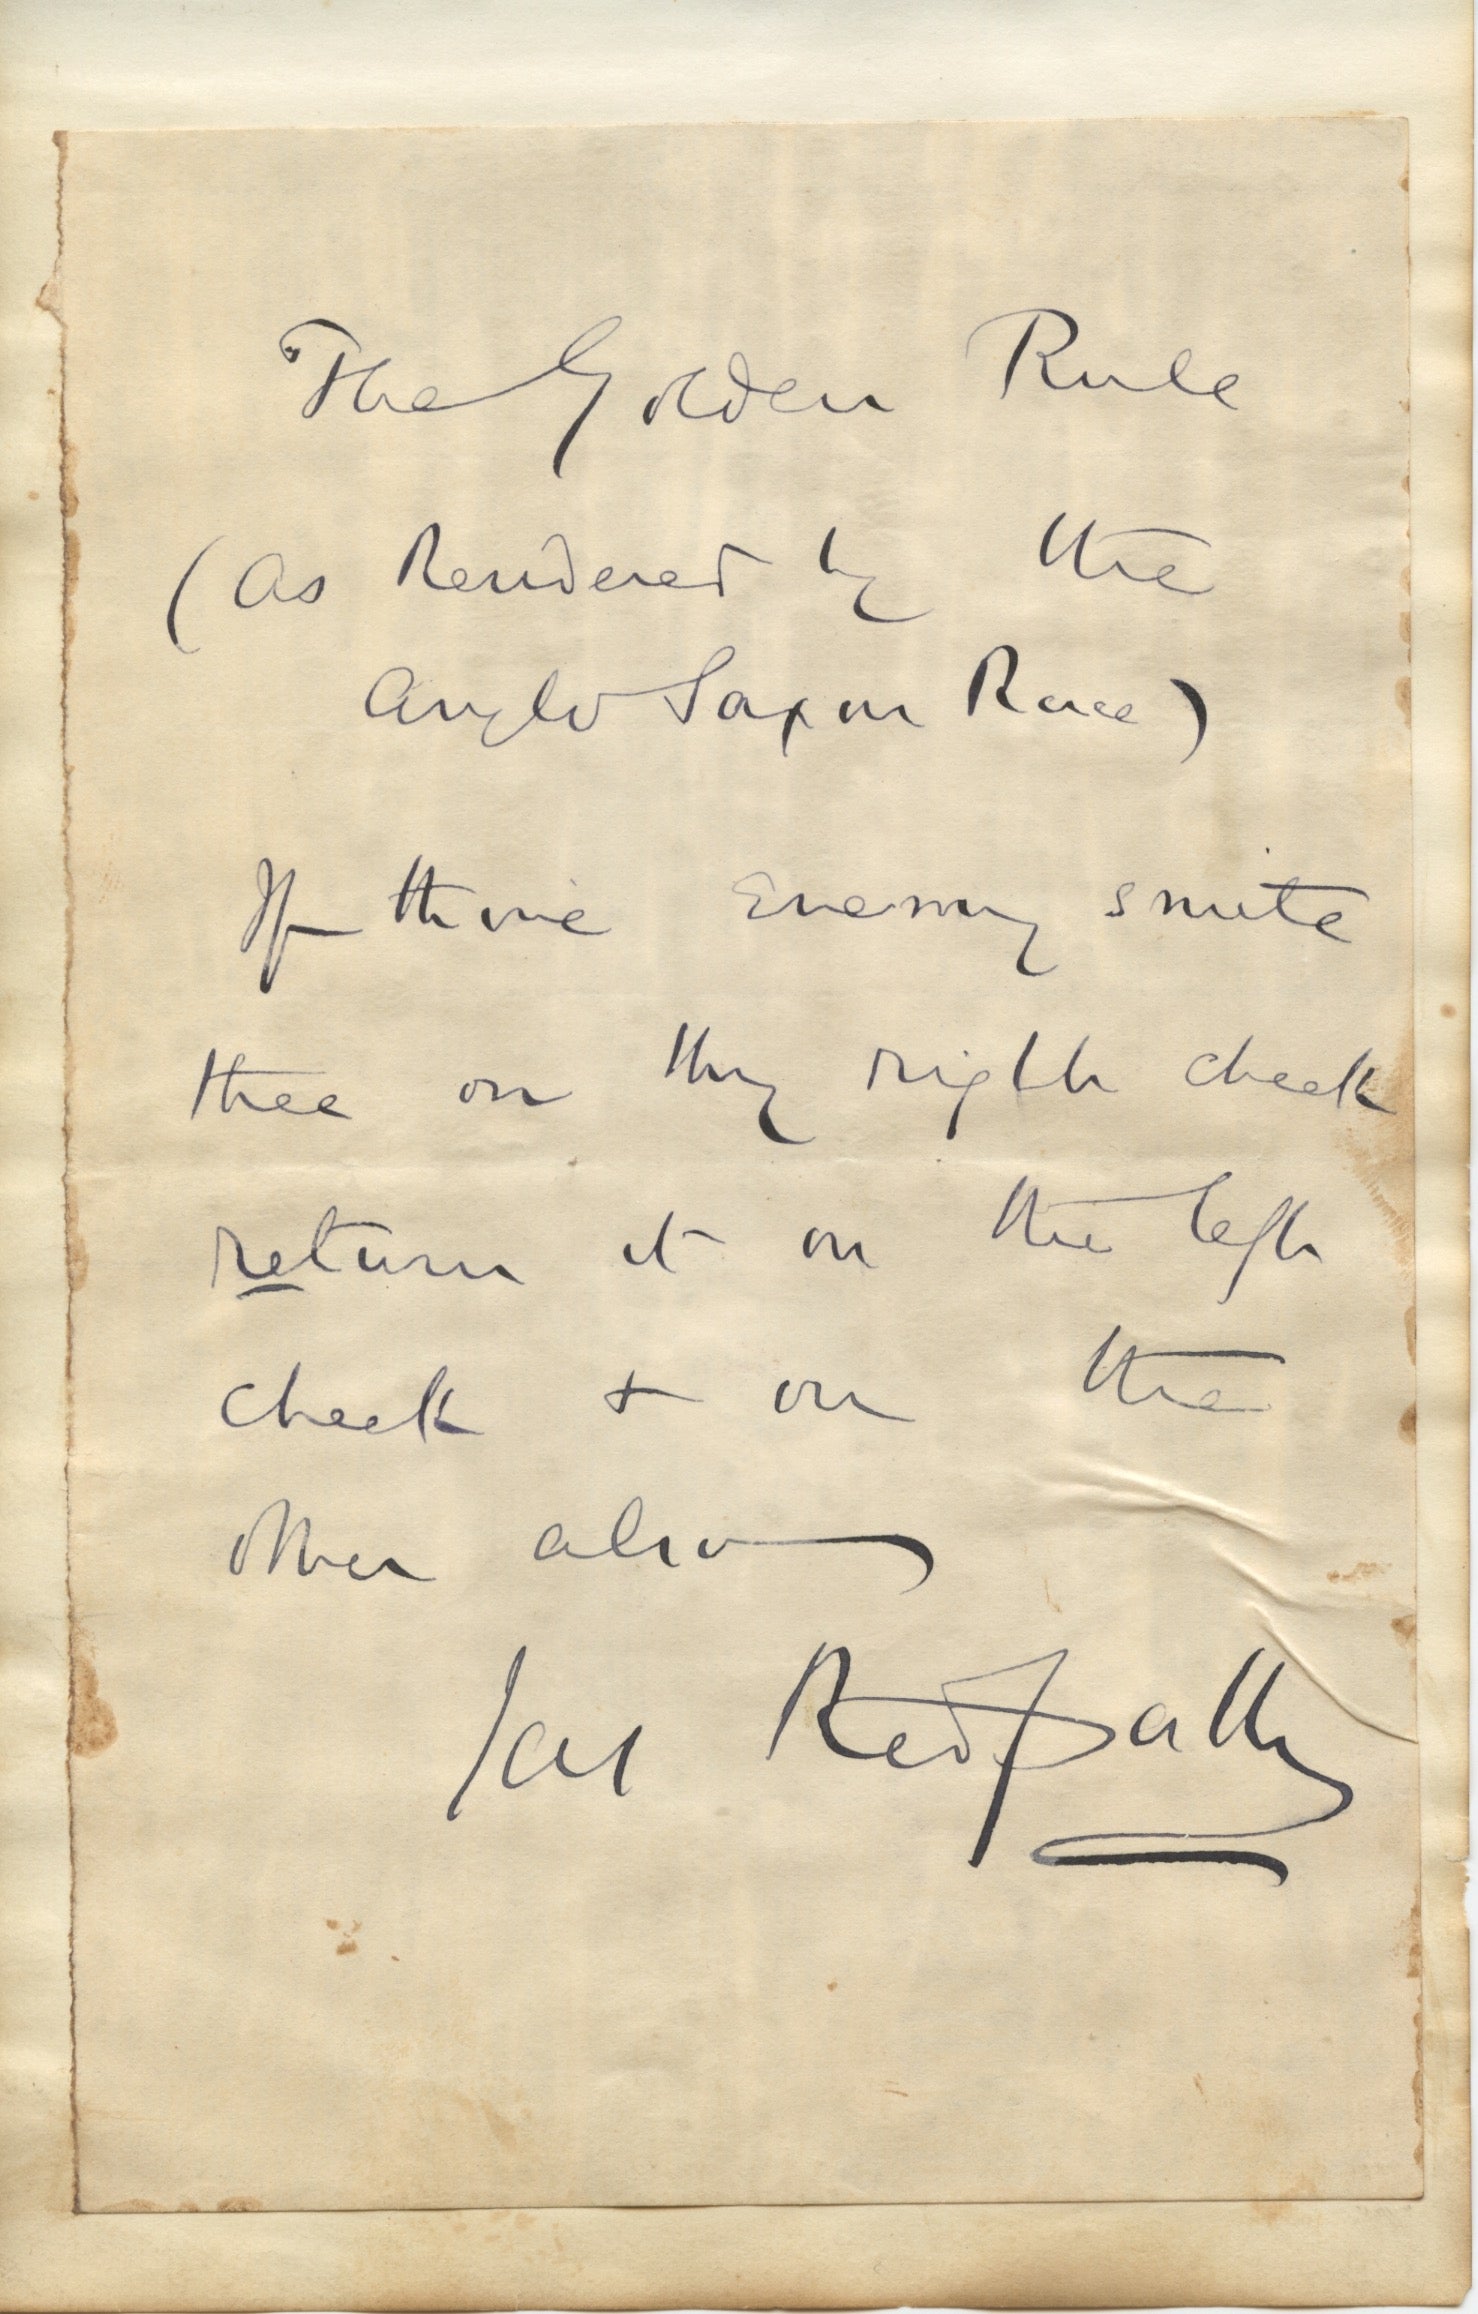 The Golden Rule
(As Rendered by the
Anglo Saxon Race)
If thine Enemy smite
thee on thy right cheek
return it on the left
cheek & on the
other also
Jas Redpath